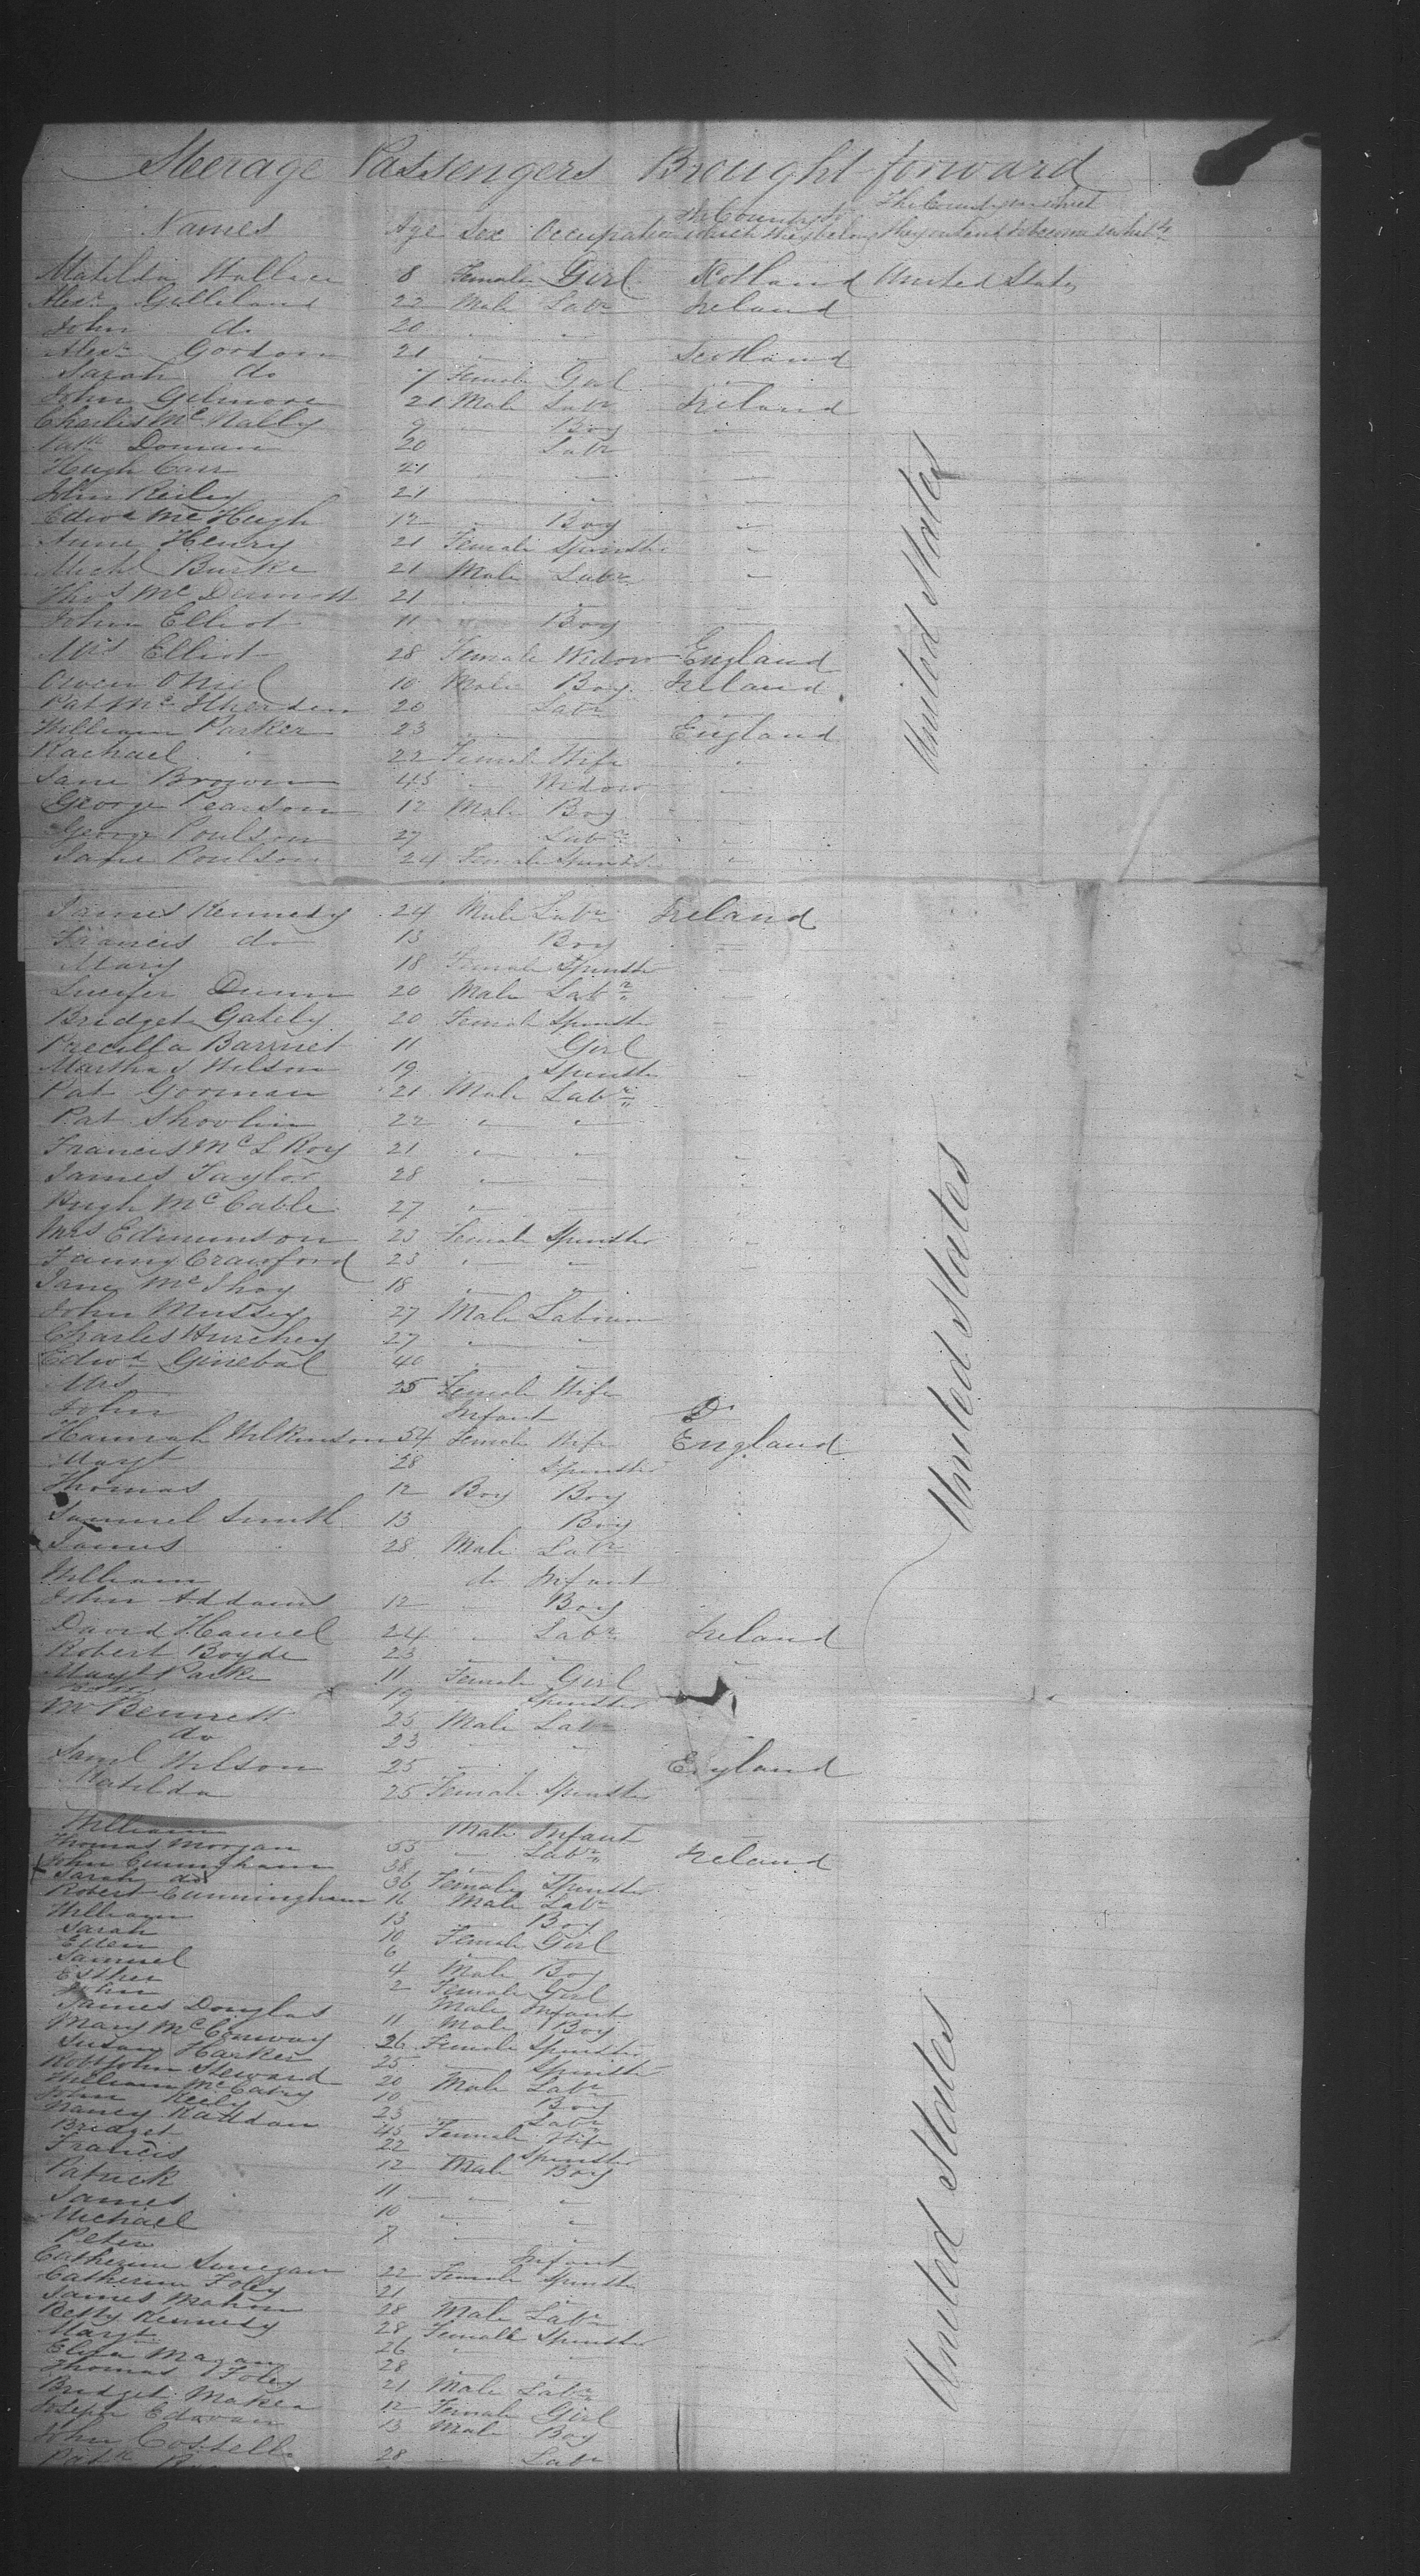 Steerage Passengers Brought forward
Names Age Sex Occupation The Country to which they belong The Country in which they intend to become inhabts
Matilda Wallace 8 Female Girl Scotland United States
Alexr Gilleland 22 Male Labr Ireland
John do 20 " "
Alexr Gordon 21 " " Scotland
Sarah do 7 Female Girl "
John Gilmore 21 Male Labr Ireland
Charles McNally 9 " Boy "
Patk Dornan 20 Labr "
Hugh Carr 21 " " "
John Reiley 21 " " "
Edwd McHugh 12 " Boy "
Anne Henry 21 Female Spinster "
Michl Burke 21 Male Labr "
Thos McDermott 21 " " "
John Elliot 11 " Boy "
Mrs Elliot 28 Female Widow England
Owen ONiel 10 Male Boy Ireland
Pat Mc 20 Labr "
William Parker 23 " " England
Rachael " 22 Female Wife "
Jane Brown 45 " Widow "
George Pearson 12 Male Boy "
George Poulson 27 Labr "
Jane Poulson 24 Female Spinster "
United States
James Kennedy 24 Male Labr Ireland
Francis do 13 Boy "
Mary 18 Female Spinster "
Dunn 20 Male Labr "
Bridget Gately 20 Female Spinster "
Precilla Barrnet 11 Girl
Martha S Wilson 19 Spinster "
Pat Gorman 21 Male Labr
Pat Shovlin 22 " "
Francis McL Roy 21 " " "
James Taylor 28 " " "
Hugh McCable 27 " "
Mrs Edmunson 23 Female Spinster "
Fanny Crawford 23 " " "
Jane 18 " "
John Mussey 27 Male Labourer
Charles 27 " "
Edwd Ginebal 40 " "
Mrs 25 Female Wife
John Infant Do
Hannah Wilkinson 54 Female Wife England
Margt 28 Spinster
Thomas 12 Boy Boy
Samuel Smith 13 Boy
James 28 Male Labr
William do Infant
John Addams 12 " Boy
David Hamel 24 " Labr Ireland
Robert Boyde 23 " " "
Margt Parke 11 Female Girl
19 " Spinster
Wm Bennett 25 Male Labr
do 23 " "
Saml Wilson 25 " " England
Matilda 25 Female Spinster
United States
William Male Infant
Thomas Morgan 55 " Labr Ireland
John Cunningham 38 "
Sarah do 36 Female Spinster
Robert Cunningham 16 Male Labr
William 13 " Boy
Sarah 10 Female Girl
Ellen 6 "
Samuel 4 Male Boy
Esther 2 Female Girl
John Male Infant
James Douglas 11 Male Boy
Mary McConway 26 Female Spinster
Susan Harker 25 " Spinster
Robt John Steward 20 Male Labr
William 10 " Boy
John Reely 23 " Labr
Nancy 45 Female Wife
Bridget 22 Spinster
Francis 12 Male Boy
Patrick 11 " "
James 10 " "
Michael 7 " "
Peter Infant
Catherine 22 Female Spinster
Catherine Foley 21 " "
James Mahon 28 Male Labr
Betty Kennedy 28 Female Spinster
Margt 26 " "
Eliza Magan 28 " "
Thomas Foley 21 Male Labr
Bridget 12 Female Girl
Joseph 13 Male Boy
John Costello 28 " Labr
Patk
United States